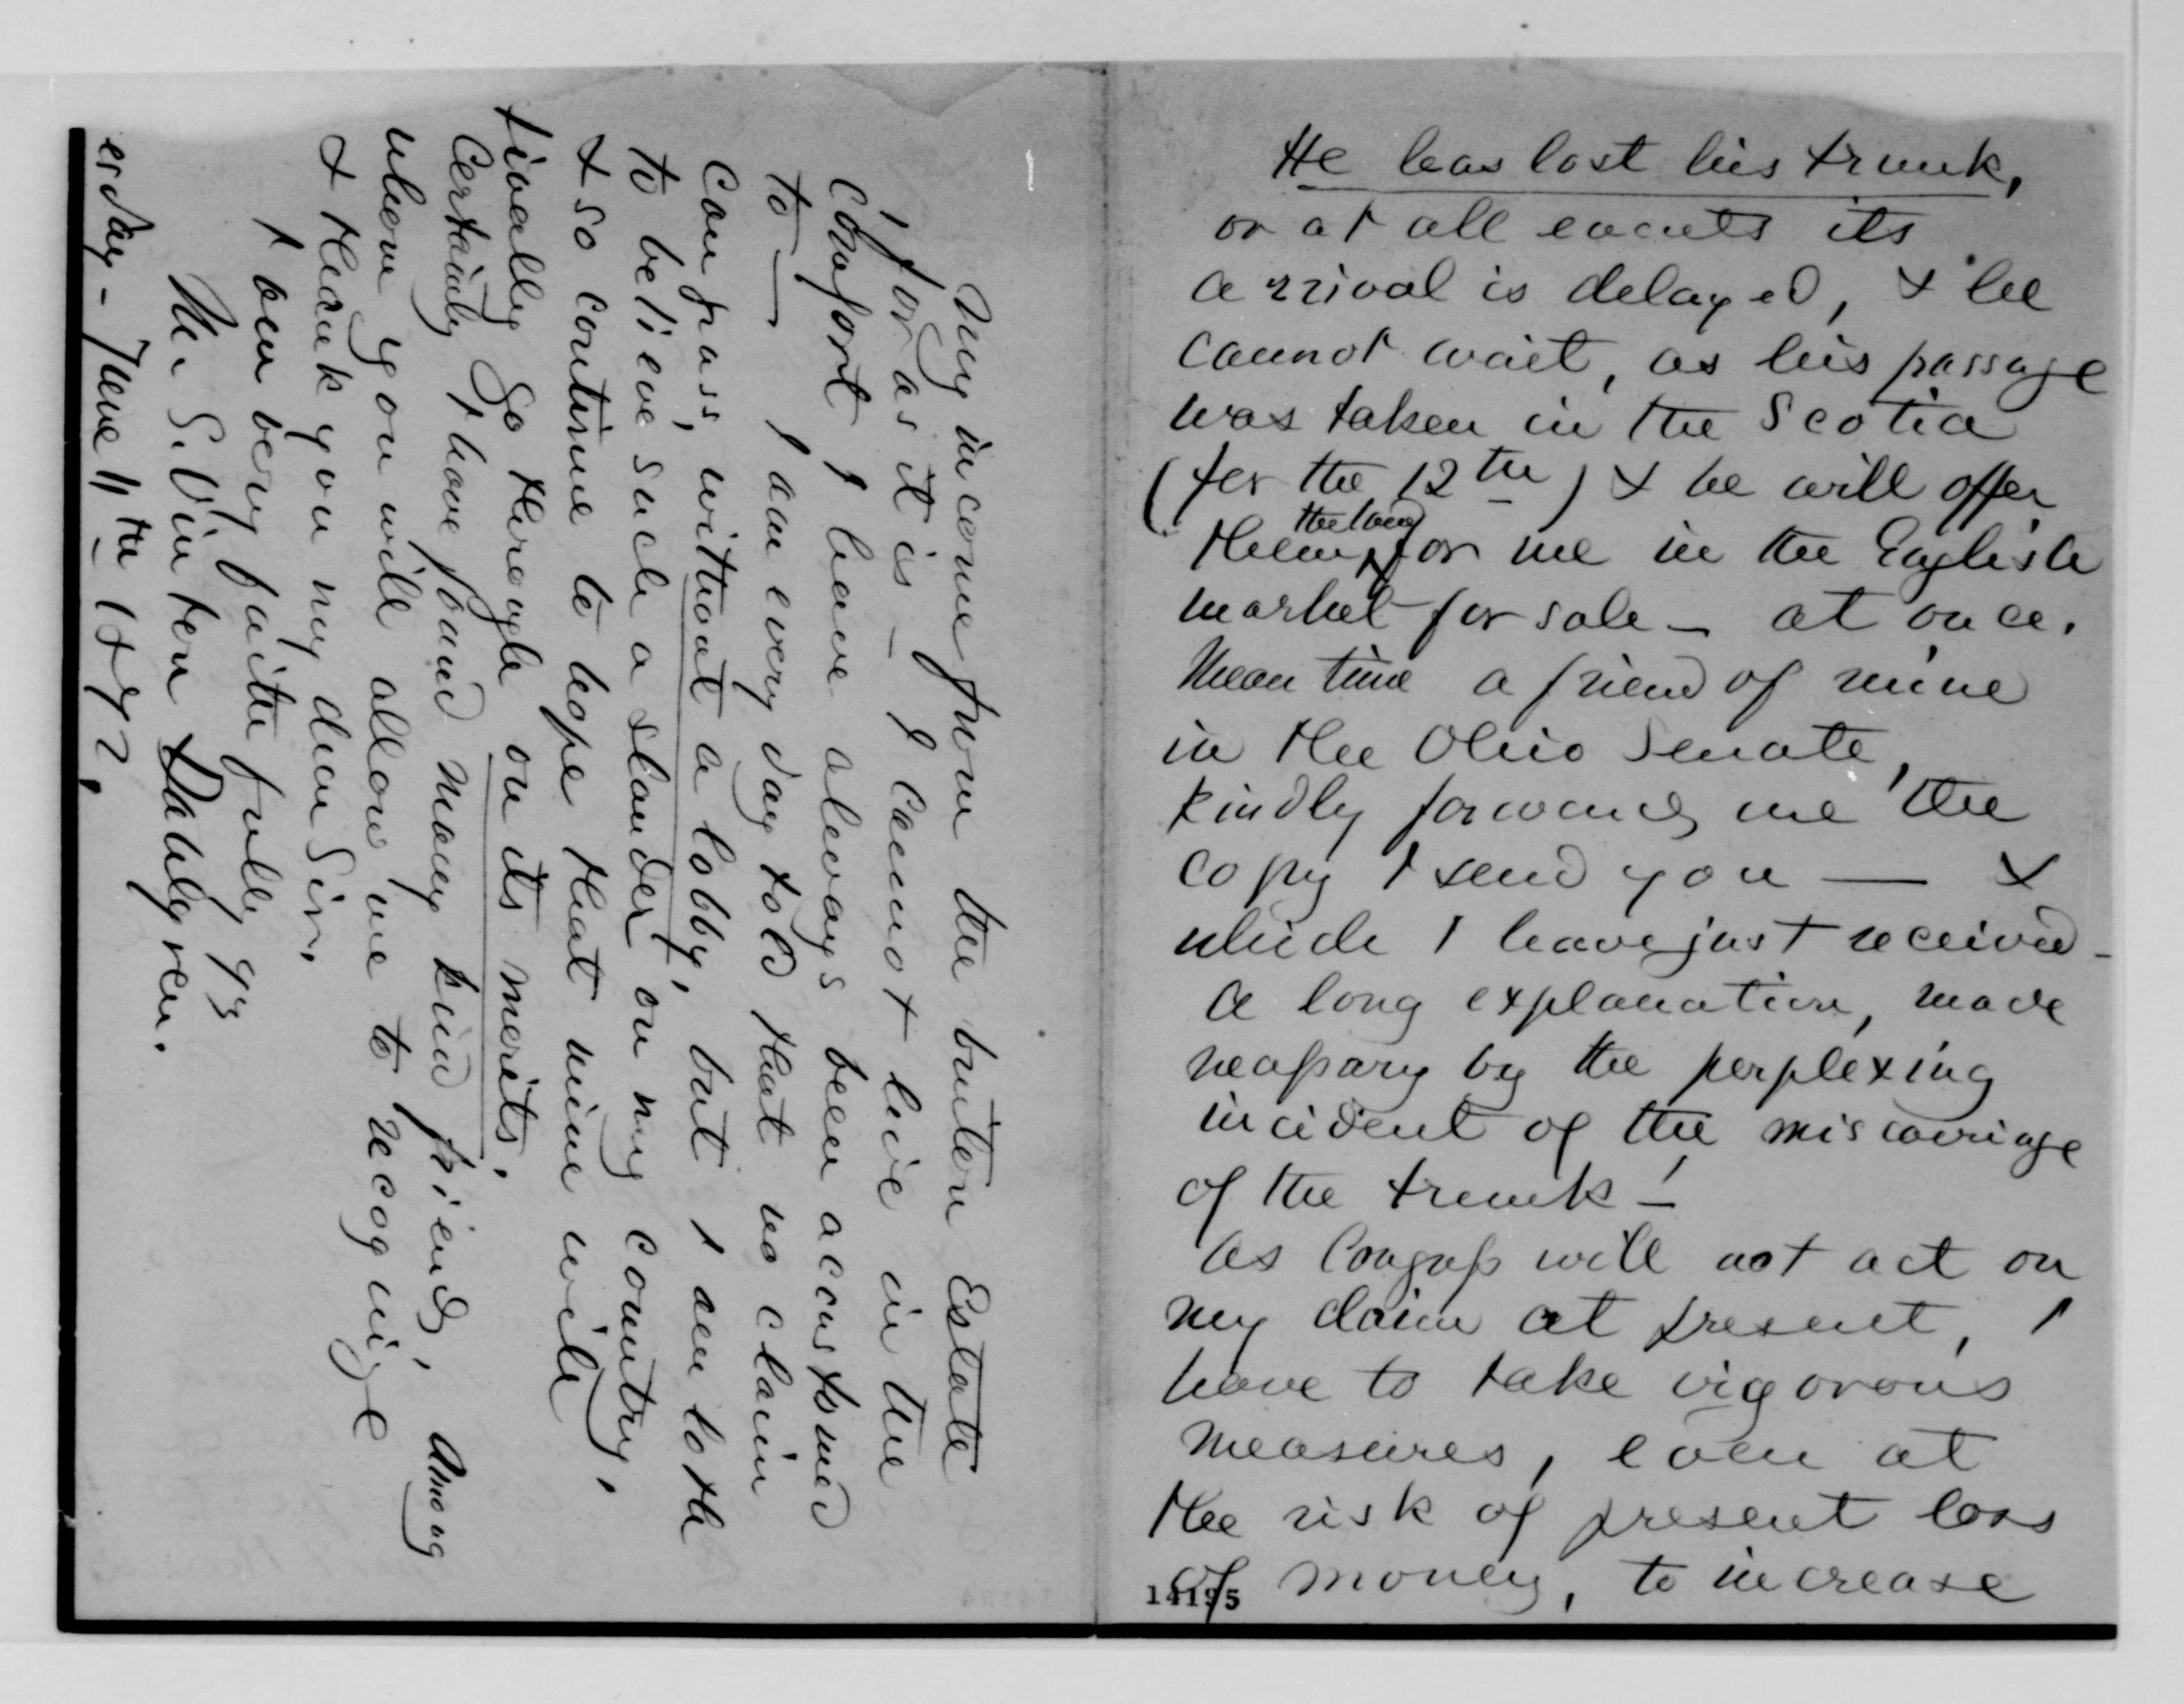 He has lost his trunk,
or at all events its
arrival is delayed, & he
cannot wait, as his passage
was taken in the Scotia
(for the 12th) & he will offer
the land
them, for me in the English
market for sale - at once.
Mean time a friend of mine
in the Ohio Senate,
kindly forwards me the
copy I send you — &
which I have just received -
a long explanation, made
necessary by the perplexing
incident of the miscarriage
of the trunk -!
As Congress will not act on
my claim at present, I
have to take vigorous
measures, even at
the risk of present loss
of money, to increase
14195
my income from the Estate
for as it is - I cannot live in the
comfort I have always been accustomed
to — I am every day told that no claim
can pass, without a lobby, but I am loth
to believe such a slander on my country,
& so continue to hope that mine will
finally go through on its merits.
Certainly I have found many kind friends, among
whom you will allow me to recognize
& thank you my dear Sir.
I am very faithfully yrs
M. S. Vinton Dahlgren.
esday - June 11th 1872.